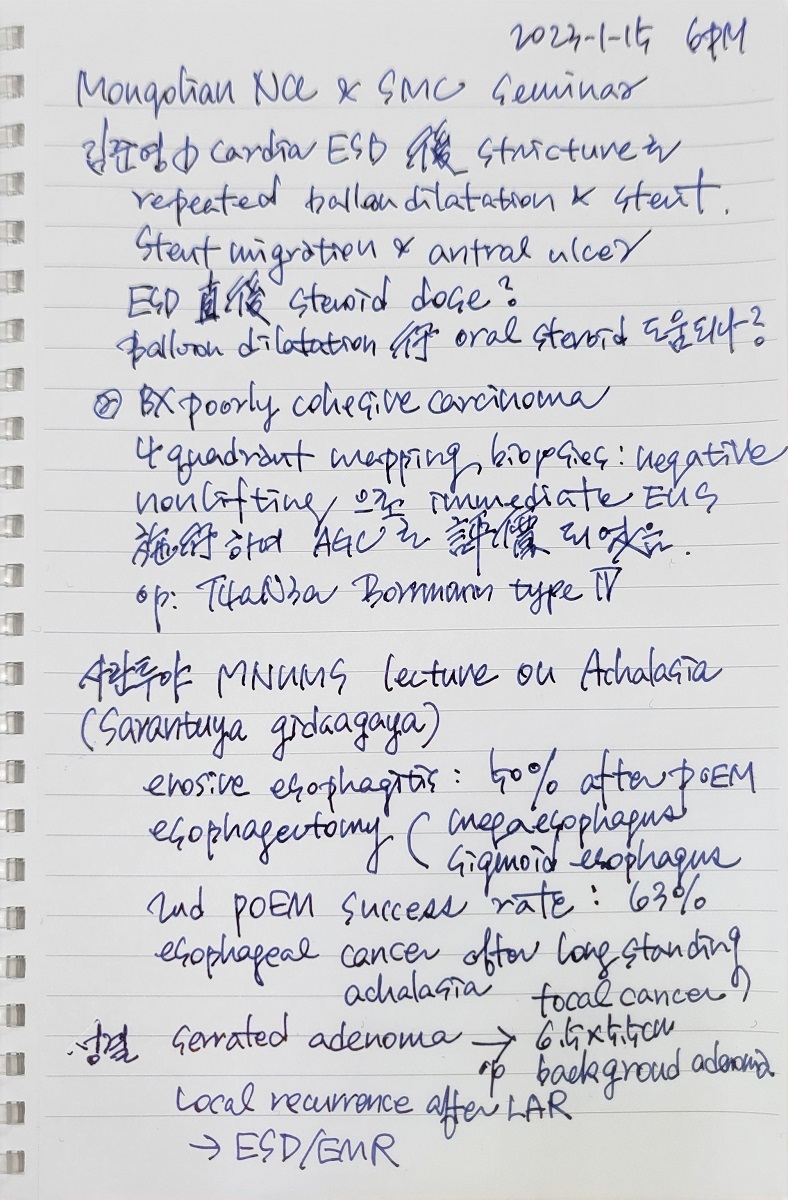 2023-1-15 6PM
Mongolian NCC & SMC Seminar
김준영 ① cardia ESD 後 stricture로
repeated balloon dilatation & stent.
Stent migration & antral ulcer
ESD 直後 steroid dose?
balloon dilatation 後 oral steroid 도움되나?
② BX poorly cohesive carcinoma
4 quadrant mapping biopsies: negative
nonlifting으로 immediate EUS
施行하여 AGC로 評價되었음.
op: T4aN3a Borrmann type IV
사란투야 MNUMS lecture on Achalasia
(Sarantuya gidaagaya)
erosive esophagitis: 50% after POEM
esophagectomy ( megaesophagus
sigmoid esophagus
2nd POEM success rate: 63%
esophageal cancer after long standing
achalasia focal cancer)
성결 serrated adenoma → 6.5x5.5cm
op backgroud adenoma
Local recurrence after LAR
→ ESD/EMR